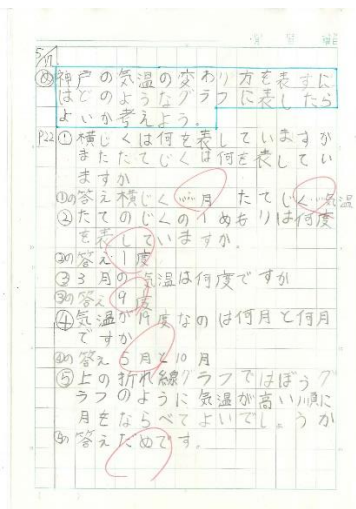 5/17
め 神戸の気温の変わり方を表すに
はどのようなグラフに表したら
よいか考えよう。
P22 ① 横じくは何を表していますか
またたてじくは何を表してい
ますか
①の答え 横じく…月 たてじく…気温
② たてのじくの1めもりは何度
を表していますか。
②の答え 1度
③ 3月の気温は何度ですか
③の答え 9度
④ 気温が19度なのは何月と何月
ですか
④の答え 5月と10月
⑤ 上の折れ線グラフではぼうグ
ラフのように気温が高い順に
月をならべてよいでしょうか
⑤の答えだめです。